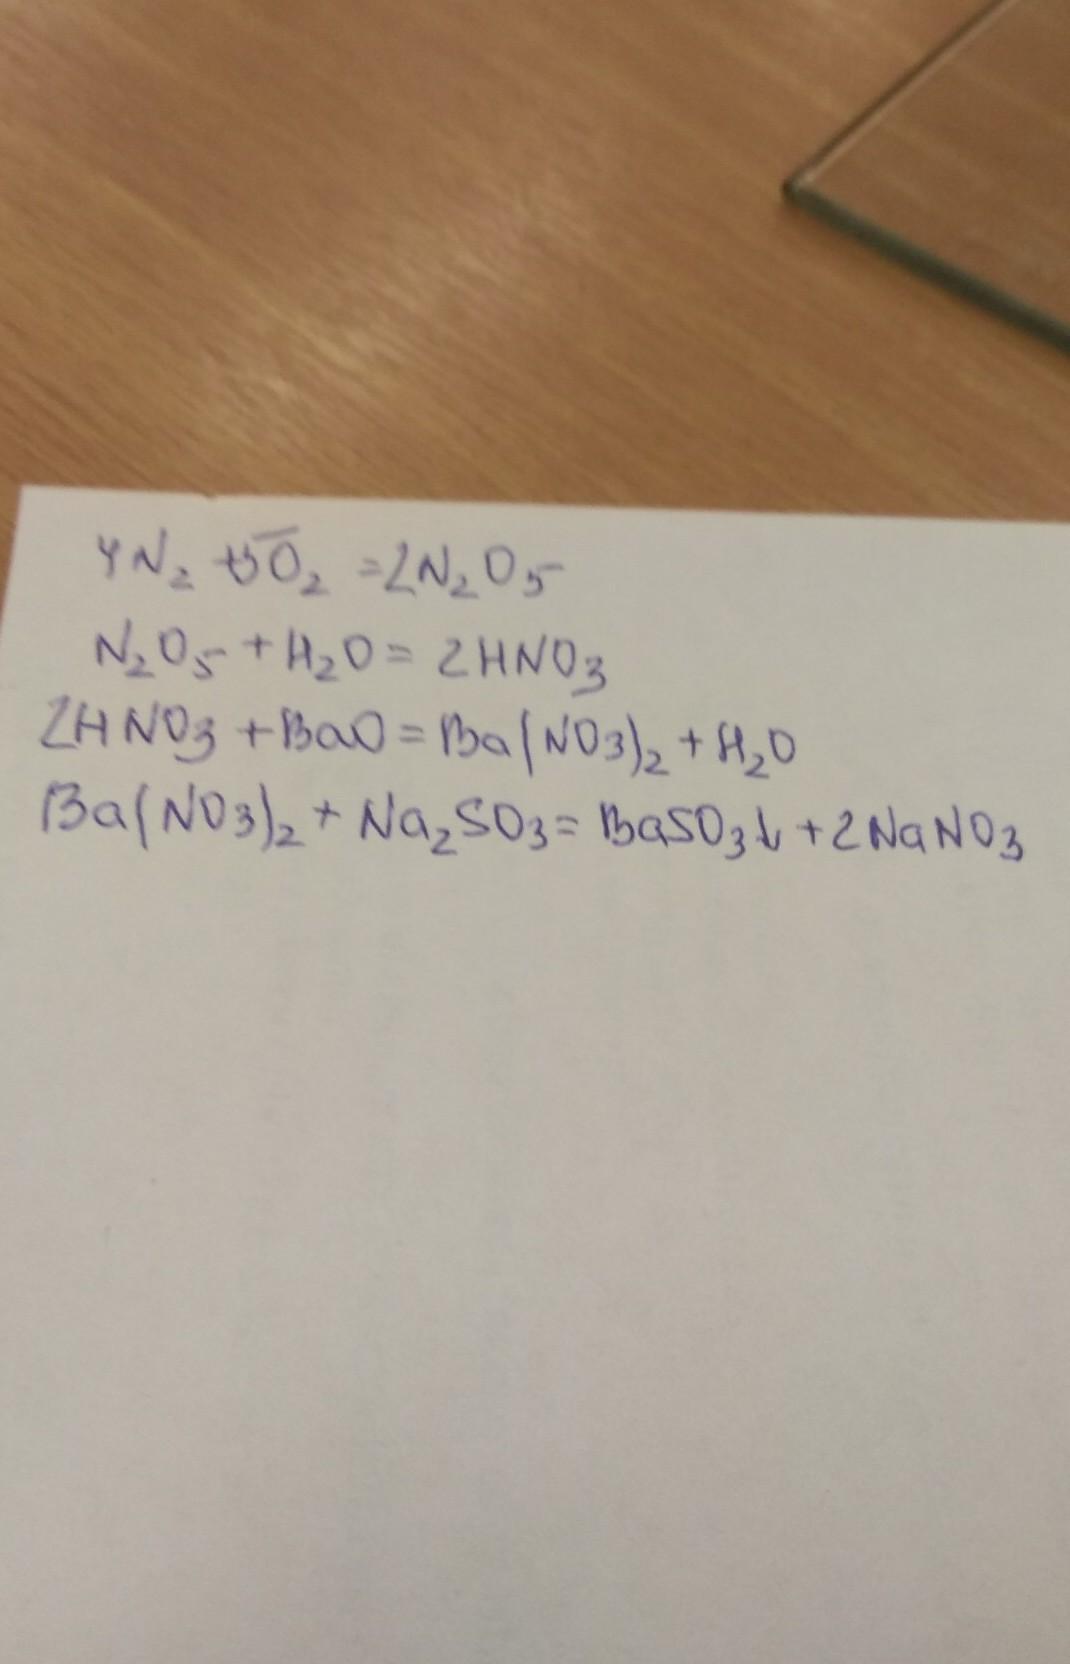 4N₂ + 5O₂ = 2N₂O₅
N₂O₅ + H₂O = 2HNO₃
2HNO₃ + BaO = Ba(NO₃)₂ + H₂O
Ba(NO₃)₂ + Na₂SO₃ = BaSO₃↓ + 2NaNO₃